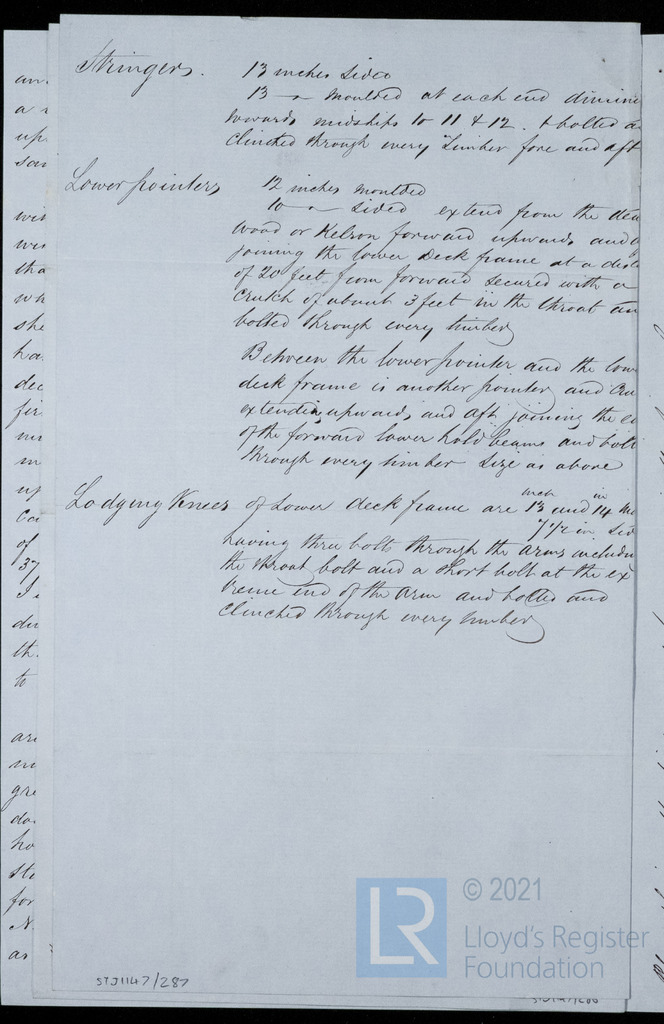 Stringers. 13 inches sided
13 " moulded at each end dimini
towards midships to 11 & 12. & bolted a
clinched through every Timber fore and aft
Lower pointers 12 inches moulded
10 " sided extend from the dea
wood or Kelson forward upwards and
joining the lower deck frame at a dist
of 20 feet from forward secured with a
crutch of about 3 feet in the throat an
bolted through every timber
Between the lower pointer and the low
deck frame is another pointer and Cru
extending upwards and aft joining the e
of the forward lower hold beams and bolt
through every timber size as above
Lodging Knees of Lower deck frame are 13 inch and 14 in Mo
7 1/2 in Sid
having thro bolts through the arms includin
the throat bolt and a short bolt at the ex
treme end of the arm and bolted and
clinched through every timber
an
a
up
sa
wit
we
tha
wh
she
ha
dec
fir
up
Ca
of
37
du
th
to
are
gre
do
ho
sto
for
N.
as
© 2021
LR
Lloyd's Register
Foundation
STJ1147/287